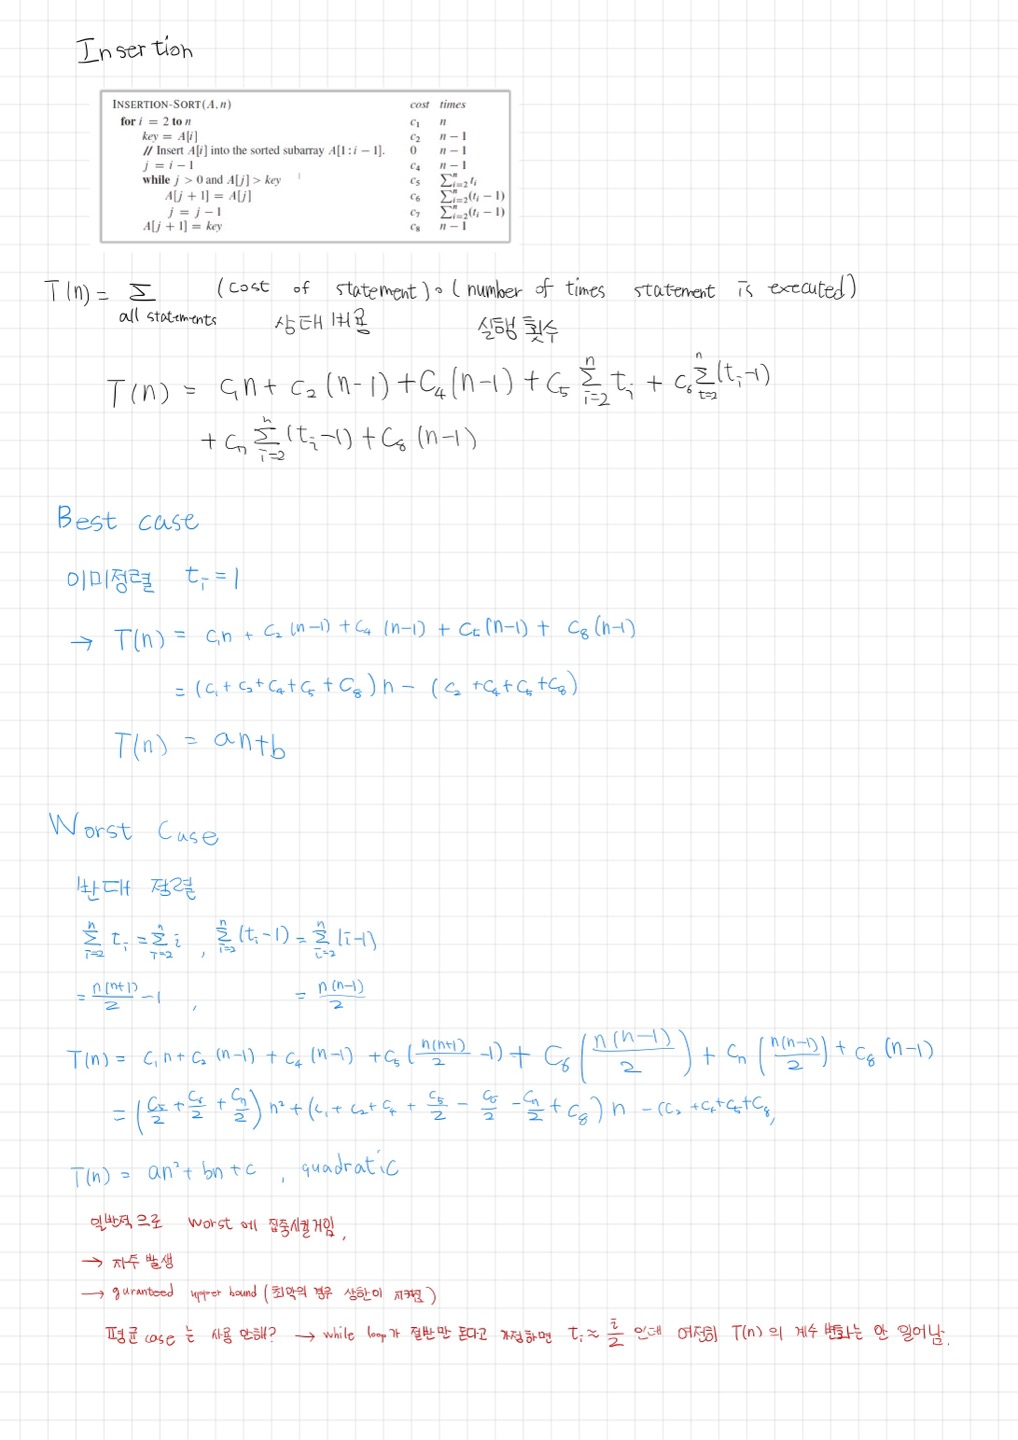 Insertion
INSERTION-SORT(A, n) cost times
for i = 2 to n c₁ n
key = A[i] c₂ n − 1
// Insert A[i] into the sorted subarray A[1 : i − 1]. 0 n − 1
j = i − 1 c₄ n − 1
while j > 0 and A[j] > key c₅ ∑ⁿᵢ₌₂ tᵢ
A[j + 1] = A[j] c₆ ∑ⁿᵢ₌₂ (tᵢ − 1)
j = j − 1 c₇ ∑ⁿᵢ₌₂ (tᵢ − 1)
A[j + 1] = key c₈ n − 1
T(n) = ∑ (cost of statement)∘(number of times statement is executed)
all statements 상태 비용 실행 횟수
T(n) = c₁n + c₂(n-1) + C₄(n-1) + C₅ ∑ⁿᵢ₌₂ tᵢ + c₆ ∑ⁿₜ₌₂ (tᵢ-1)
+ C₇ ∑ⁿᵢ₌₂ (tᵢ-1) + C₈ (n-1)
Best case
이미정렬 tᵢ = 1
→ T(n) = c₁n + c₂(n-1) + c₄(n-1) + C₅(n-1) + C₈(n-1)
= (c₁ + c₂ + c₄ + c₅ + C₈)n - (c₂ + c₄ + c₅ + c₈)
T(n) = an+b
Worst Case
반대 정렬
∑ⁿᵢ₌₂ tᵢ = ∑ⁿᵢ₌₂ i , ∑ⁿᵢ₌₂ (tᵢ-1) = ∑ⁿᵢ₌₂ (i-1)
= n(n+1)/2 - 1 , = n(n-1)/2
T(n) = c₁n + c₂(n-1) + c₄(n-1) + c₅(n(n+1)/2 - 1) + C₆(n(n-1)/2) + C₇(n(n-1)/2) + c₈(n-1)
= (C₅/2 + C₆/2 + C₇/2) n² + (c₁ + c₂ + c₄ + C₅/2 - C₆/2 - C₇/2 + c₈) n - (c₂ + c₄ + c₅ + c₈
T(n) = an² + bn + c , quadratic
일반적으로 worst 에 집중시킬거임,
→ 자주 발생
→ guranteed upper bound (최악의 경우 상한이 지켜짐)
평균 case 는 사용 안해? → while loop가 절반만 돈다고 가정하면 tᵢ ≈ i/2 인데 여전히 T(n)의 계수 변화는 안 일어남.